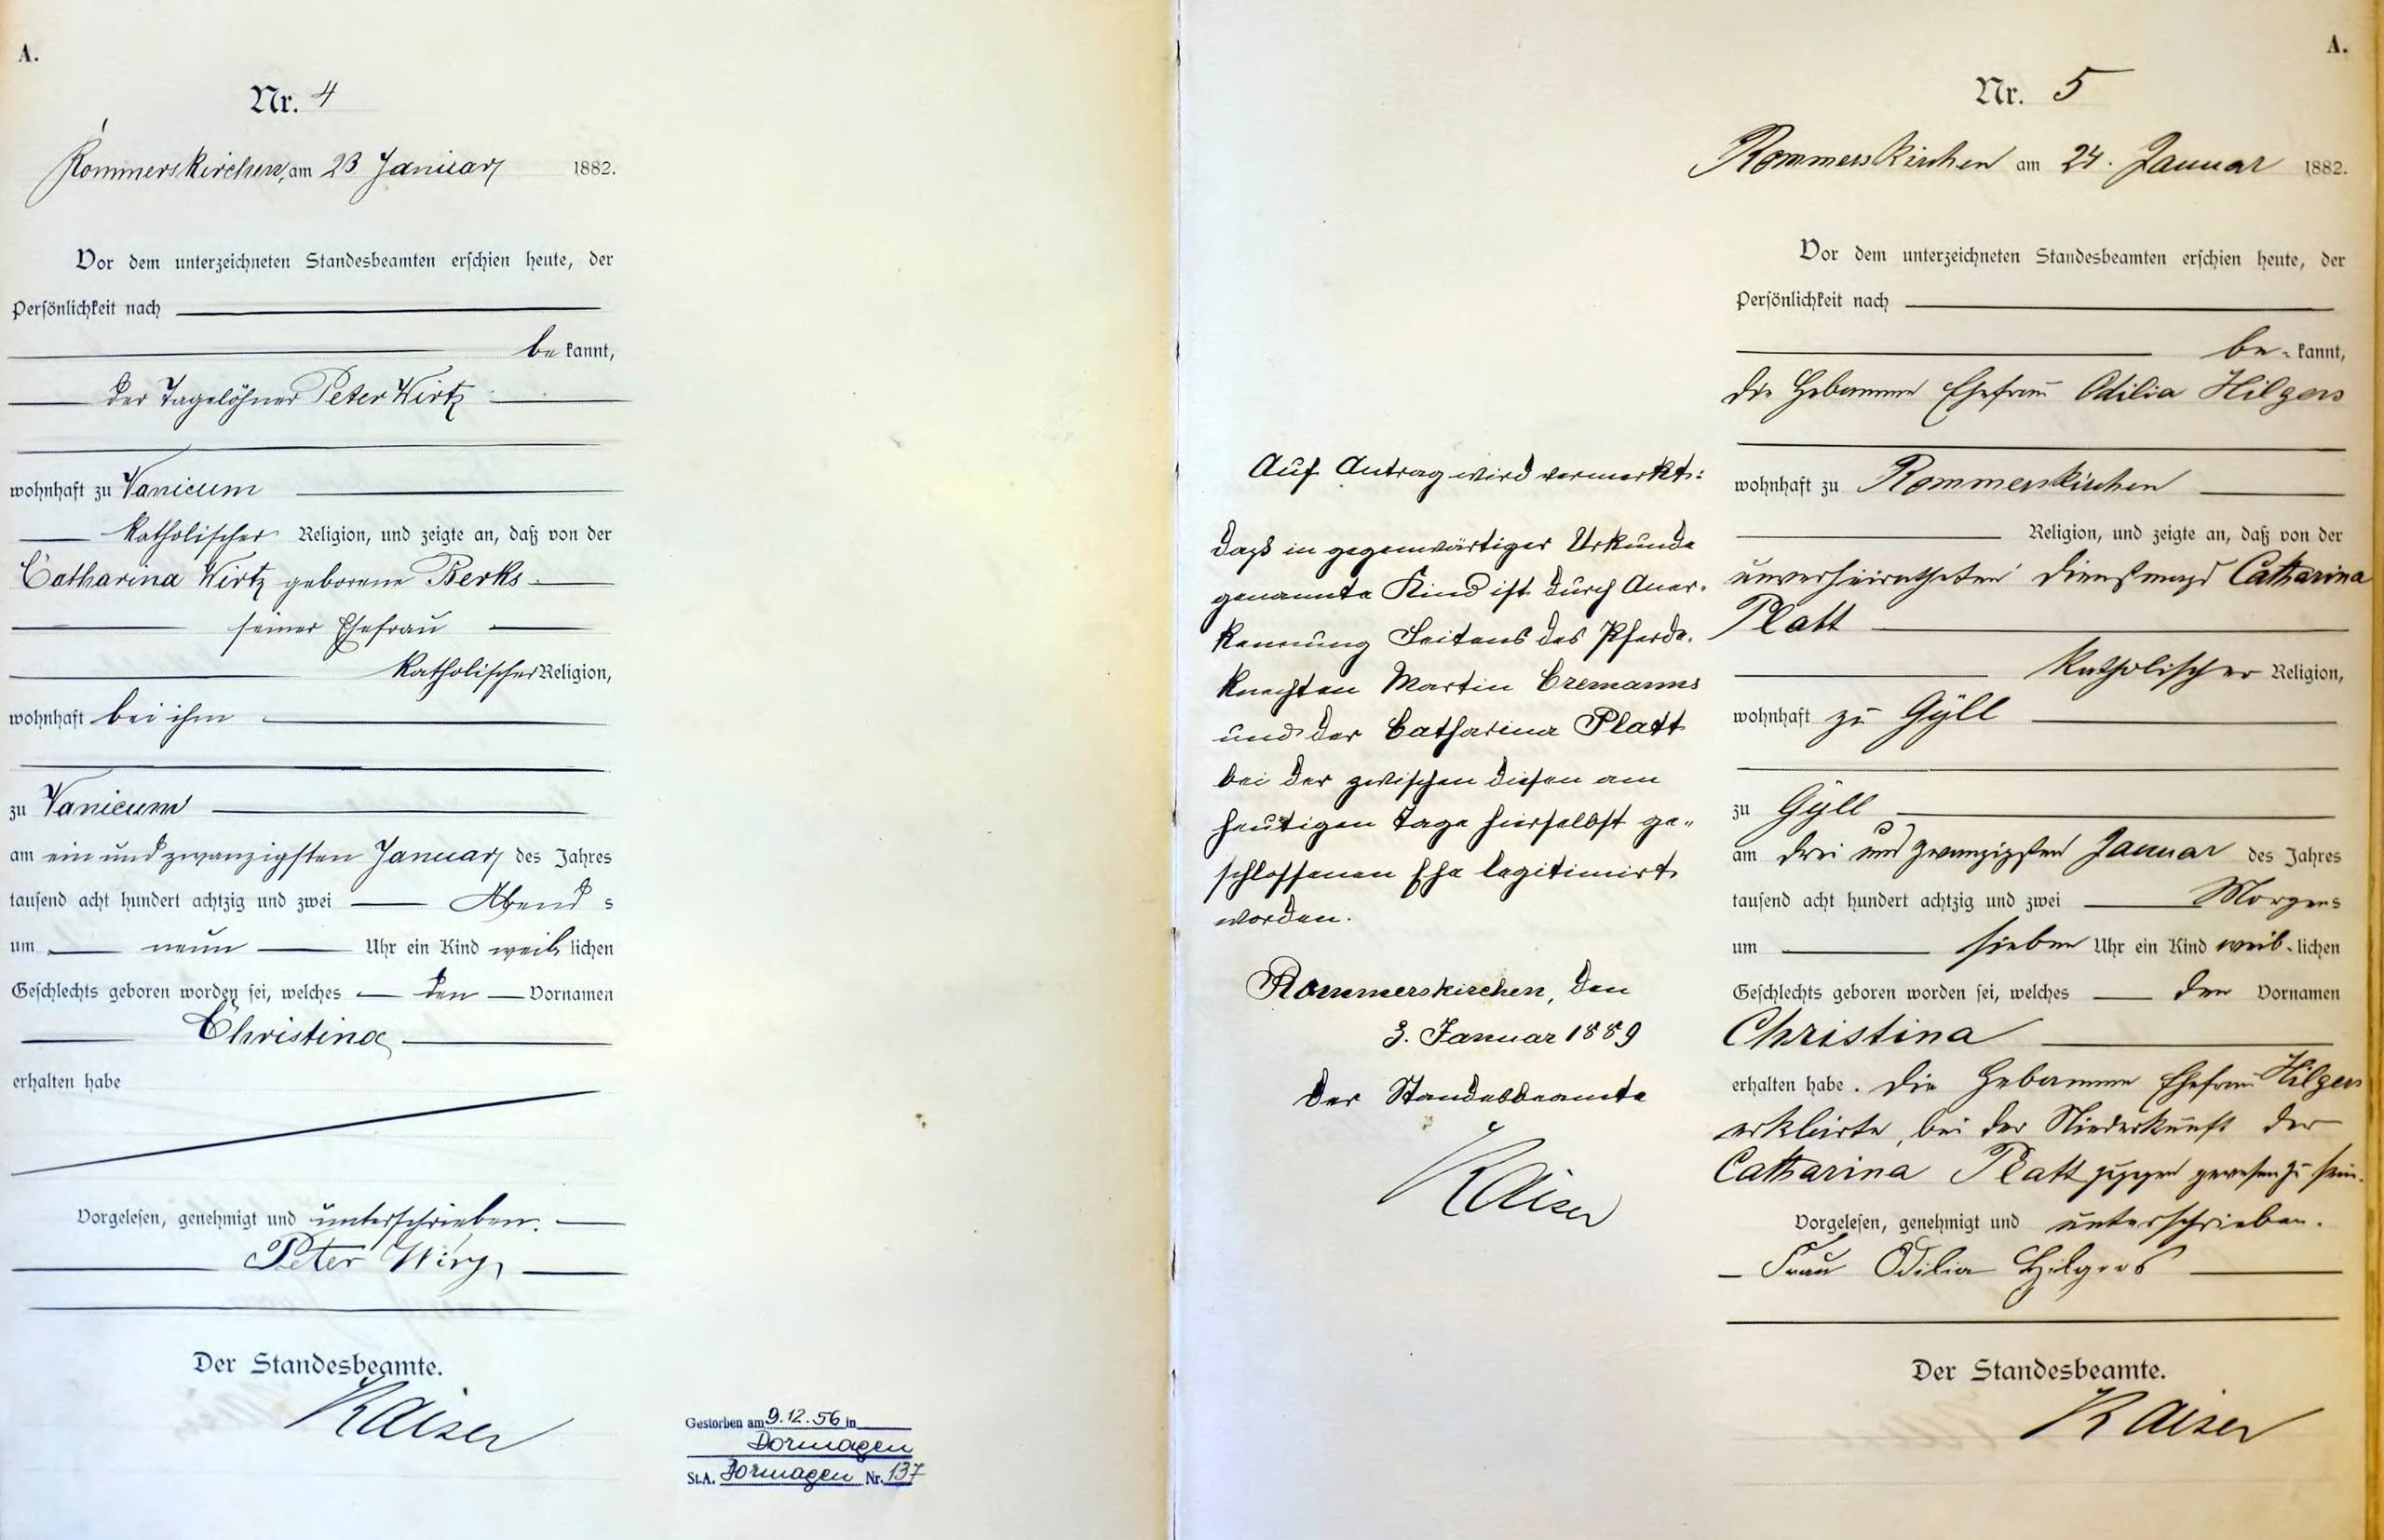 A.
Nr. 4
Rommerskirchen, am 23 Januar 1882.
Vor dem unterzeichneten Standesbeamten erschien heute, der
Persönlichkeit nach
be kannt,
der Tagelöhner Peter Wirtz
wohnhaft zu Vanicum
katholischer Religion, und zeigte an, daß von der
Catharina Wirtz geborene Berks
seiner Ehefrau
katholischer Religion,
wohnhaft bei ihm
zu Vanicum
am ein und zwanzigsten Januar des Jahres
tausend acht hundert achtzig und zwei Abend s
um neun Uhr ein Kind weib lichen
Geschlechts geboren worden sei, welches den Vornamen
Christina
erhalten habe
Vorgelesen, genehmigt und unterschrieben.
Peter Wirz
Der Standesbeamte.
Kaiser
Gestorben am 9.12.56 in
Dormagen
St.A. Dormagen Nr. 137
Auf Antrag wird vermerkt:
daß in gegenwärtiger Urkunde
genannte Kind ist durch Aner-
kennung Seitens des Pferde-
knechten Martin Cremanns
und der Catharina Platt
bei der zwischen diesen am
heutigen Tage hierselbst ge-
schlossenen Ehe legitimirt
worden.
Rommerskirchen, den
3. Januar 1889
Der Standesbeamte
Kaiser
A.
Nr. 5
Rommerskirchen am 24. Januar 1882.
Vor dem unterzeichneten Standesbeamten erschien heute, der
Persönlichkeit nach
be- kannt,
die Hebamme Ehefrau Odilia Hilgers
wohnhaft zu Rommerskirchen
Religion, und zeigte an, daß von der
unverheiratheten Dienstmagd Catharina
Platt
katholischer Religion,
wohnhaft zu Gyll
zu Gyll
am drei und zwanzigsten Januar des Jahres
tausend acht hundert achtzig und zwei Morgens
um sieben Uhr ein Kind weib-lichen
Geschlechts geboren worden sei, welches den Vornamen
Christina
erhalten habe. Die Hebamme Ehefrau Hilgers
erklärte, bei der Niederkunft der
Catharina Platt zugegen gewesen zu sein.
Vorgelesen, genehmigt und unterschrieben.
Frau Odilia Hilgers
Der Standesbeamte.
Kaiser